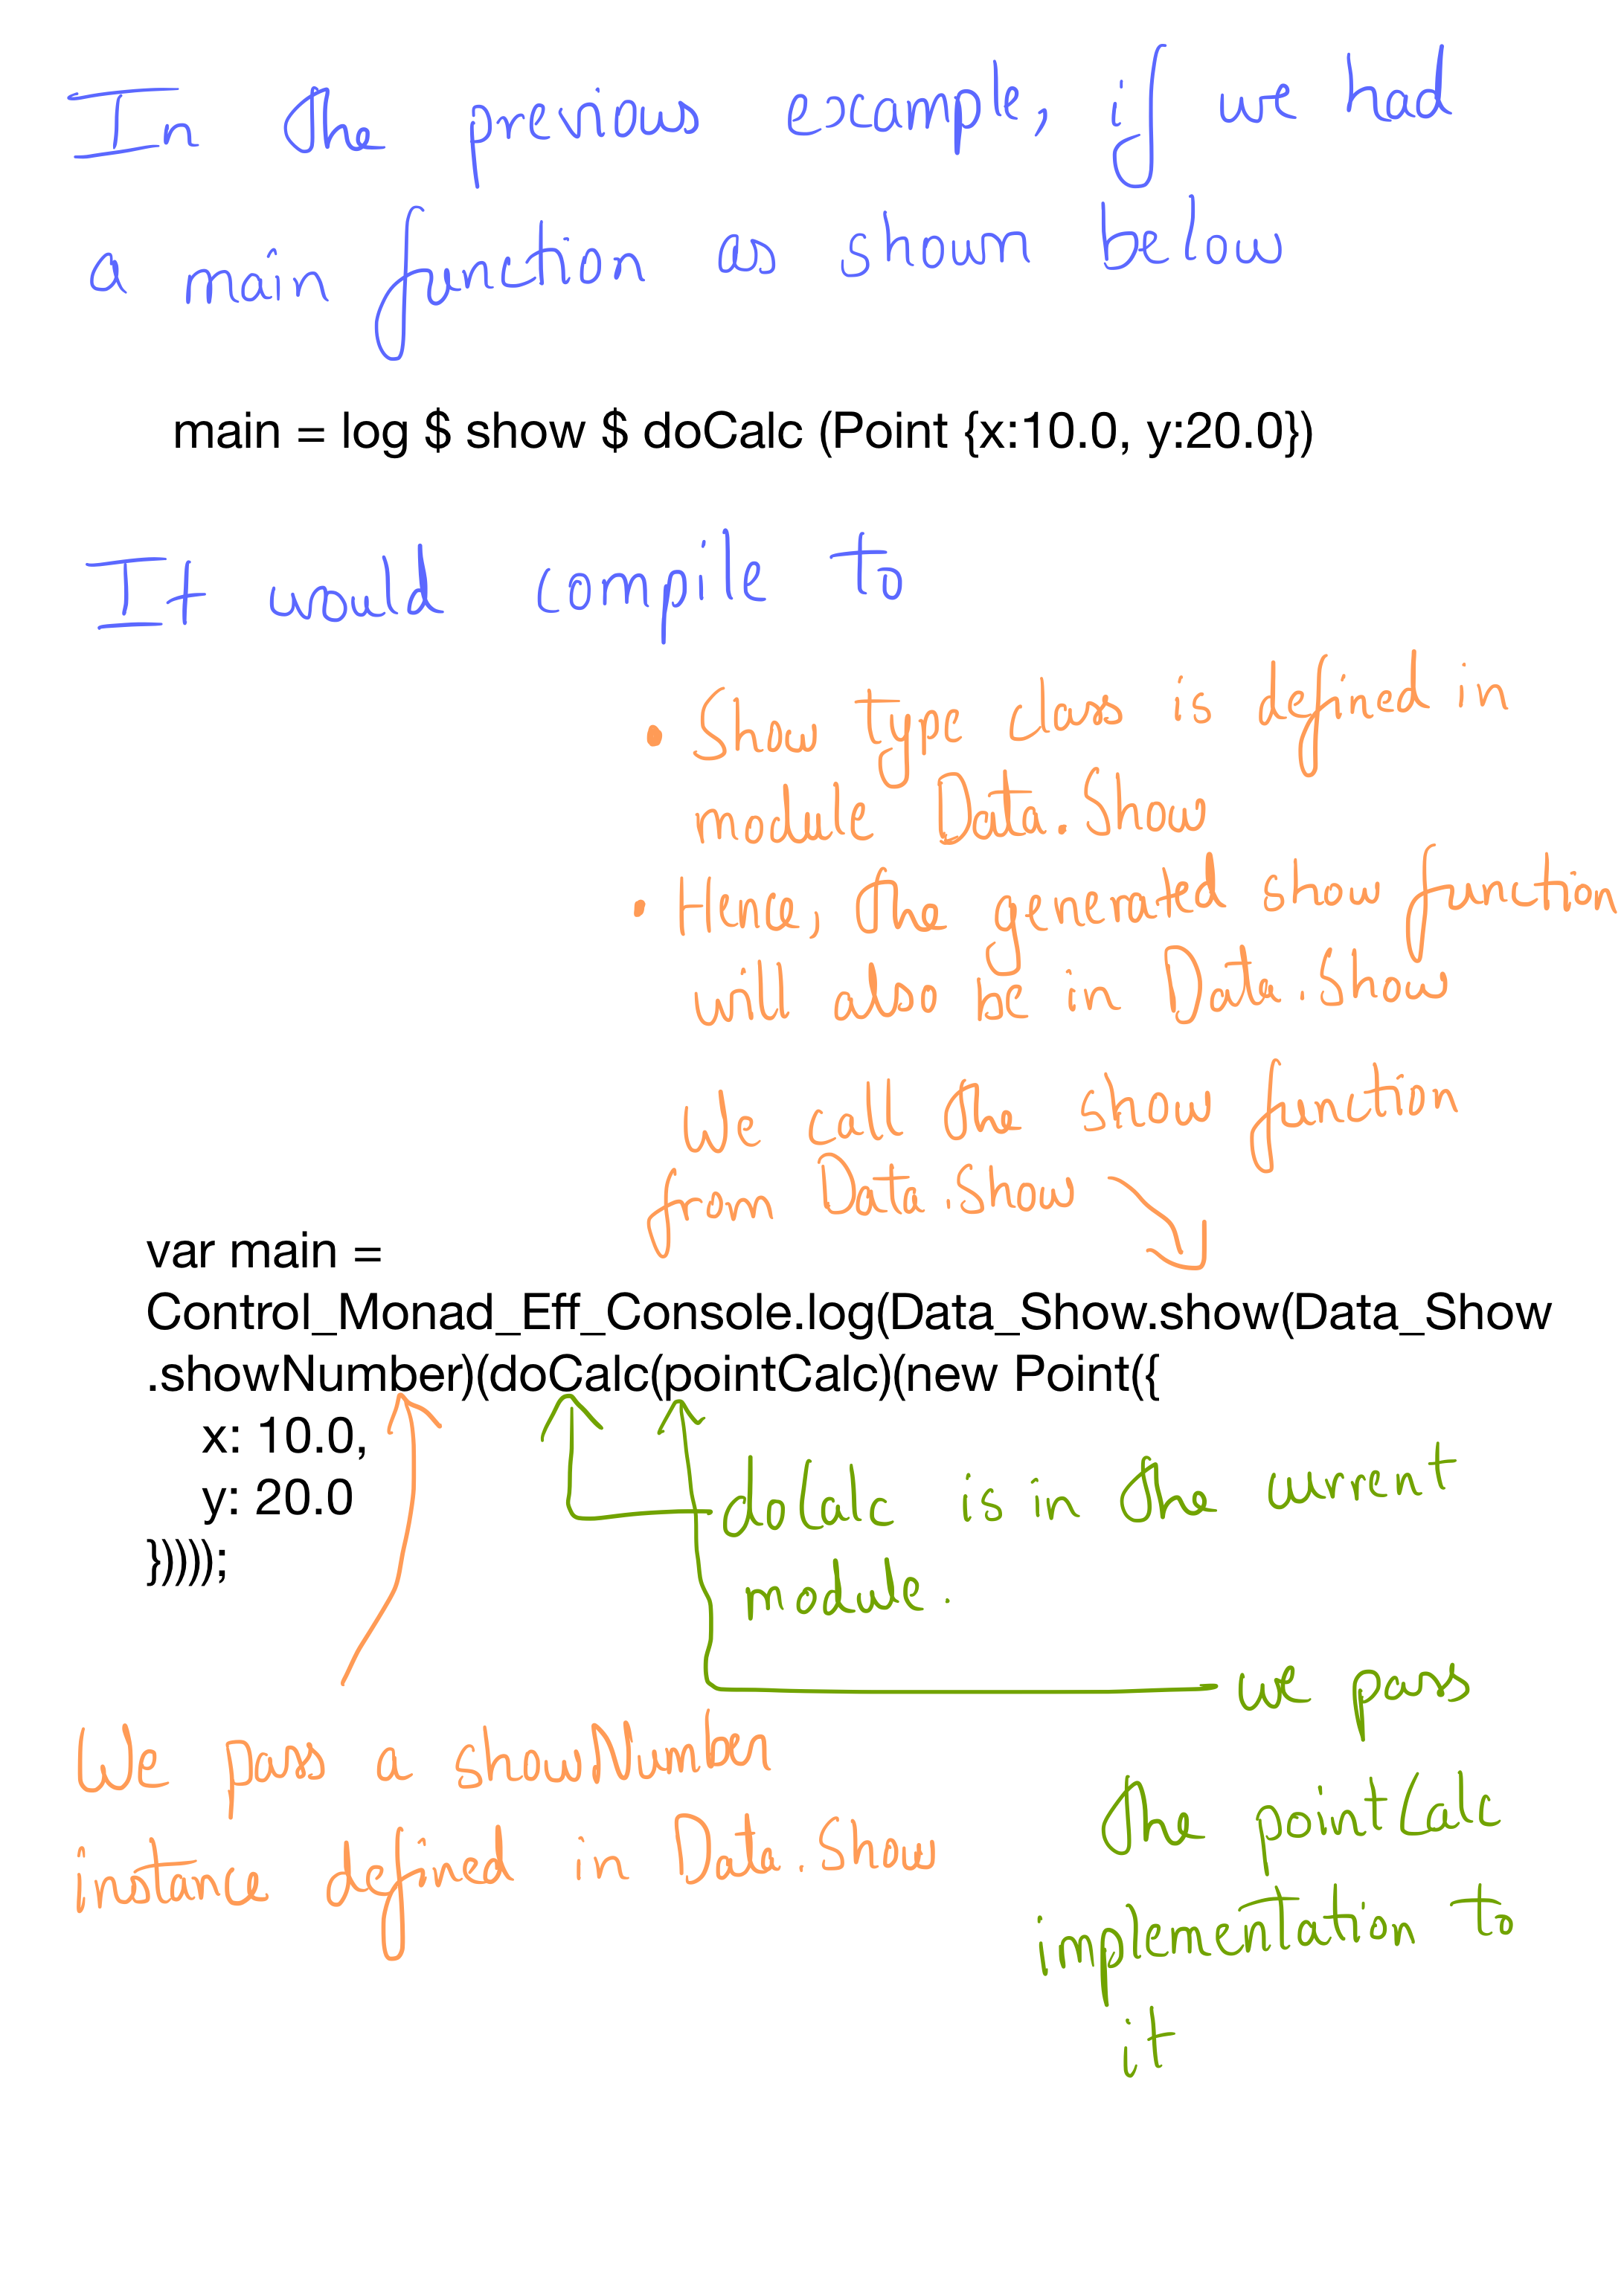 In the previous example, if we had
a main function as shown below
main = log $ show $ doCalc (Point {x:10.0, y:20.0})
It would compile to
• Show type class is defined in
module Data.Show
• Hence, the generated show function
will also be in Data.Show
We call the show function
from Data.Show
var main =
Control_Monad_Eff_Console.log(Data_Show.show(Data_Show
.showNumber)(doCalc(pointCalc)(new Point({
x: 10.0,
y: 20.0
}))));
doCalc is in the current
module.
we pass
the pointCalc
implementation to
it
We pass a showNumber
instance defined in Data.Show